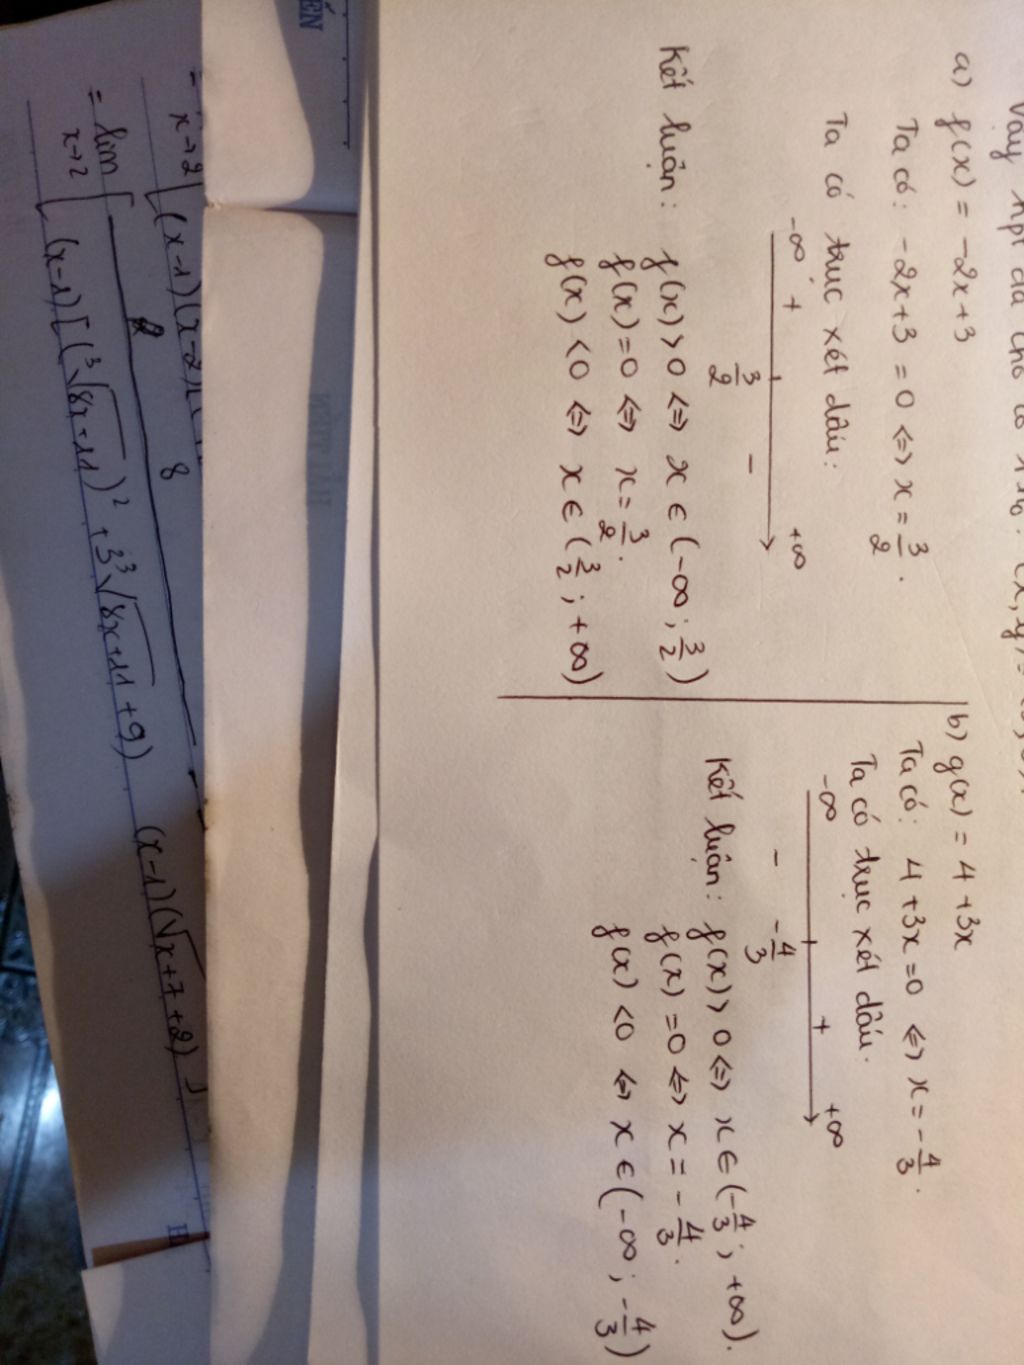 Vậy hpt đã cho có
a) f(x) = -2x+3
Ta có: -2x+3 = 0 <=> x = 3/2.
Ta có trục xét dấu:
-∞ + 3/2 - +∞
Kết luận: f(x) > 0 <=> x ∈ (-∞; 3/2)
f(x) = 0 <=> x = 3/2.
f(x) < 0 <=> x ∈ (3/2; +∞)
b) g(x) = 4 +3x
Ta có: 4 +3x = 0 <=> x = -4/3.
Ta có trục xét dấu.
-∞ - -4/3 + +∞
Kết luận: f(x) > 0 <=> x ∈ (-4/3; +∞).
f(x) = 0 <=> x = -4/3.
f(x) < 0 <=> x ∈ (-∞; -4/3)
= x→2 [ (x-1)(x-2)
8
= lim x→2 [ (x-1)[(∛8x+11)² + 3∛8x+11 +9) (x-1)(√x+7 +2) ]